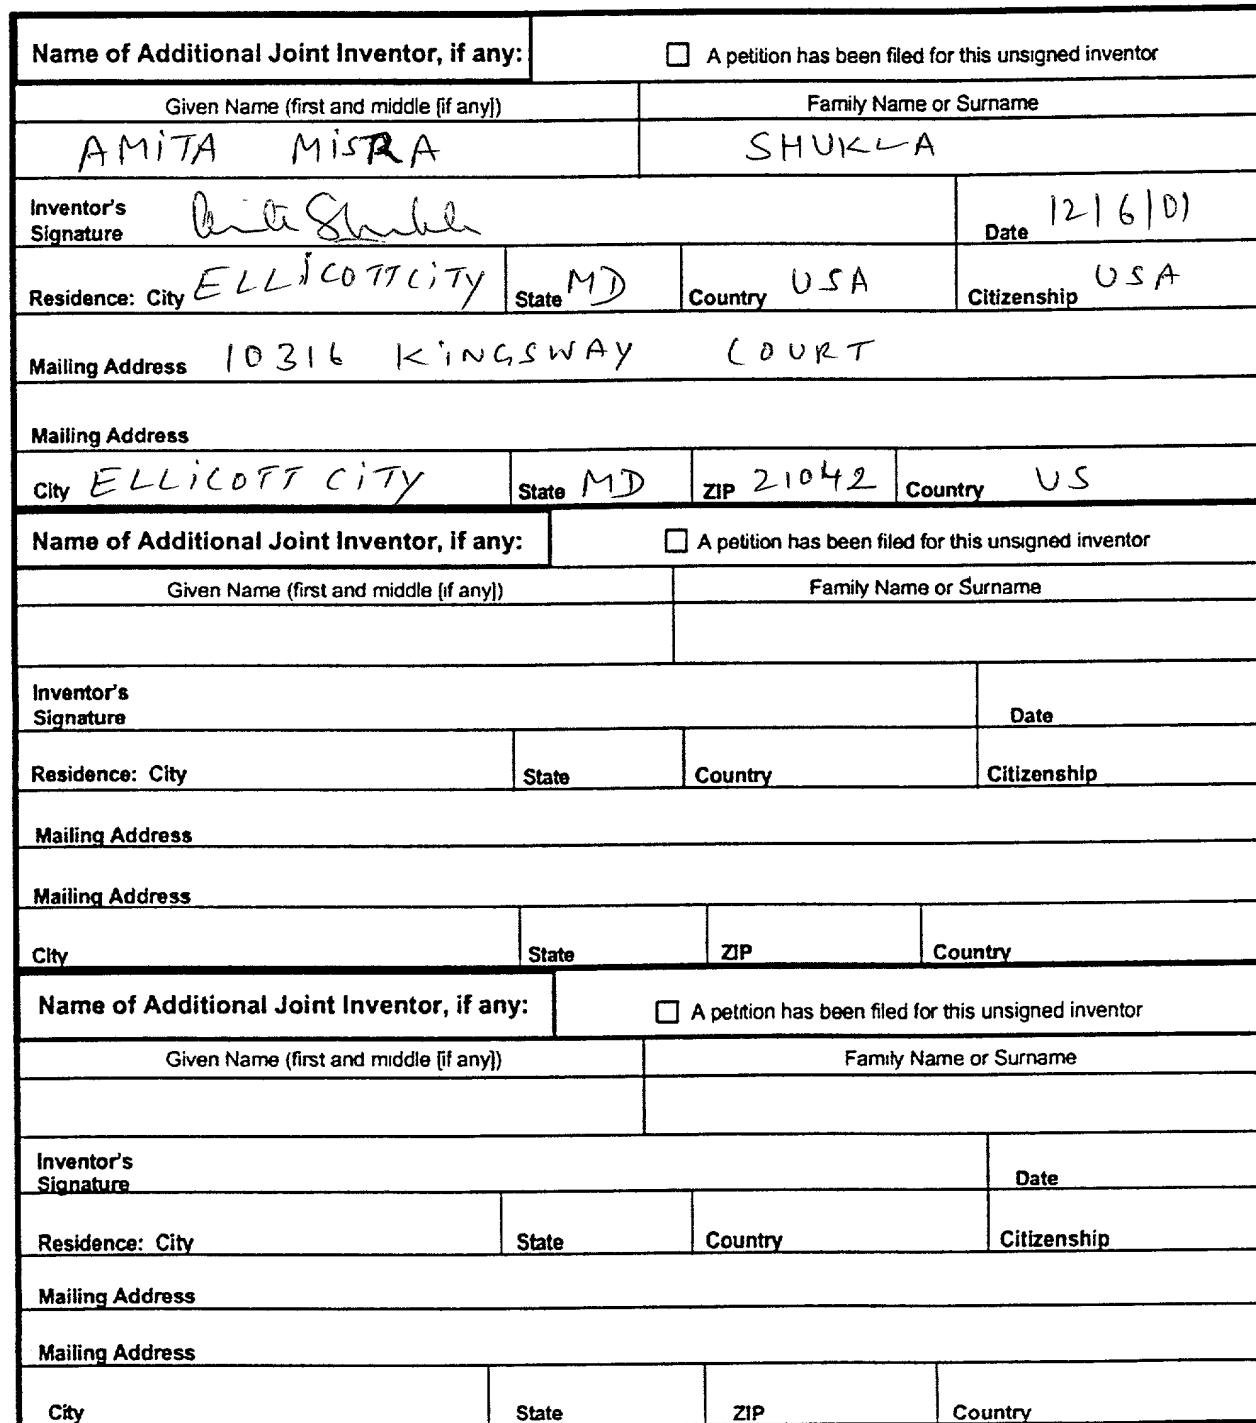 Name of Additional Joint Inventor, if any: ☐ A petition has been filed for this unsigned inventor
Given Name (first and middle [if any]) Family Name or Surname
AMiTA MiSRA SHUKLA
Inventor's
Signature Date 12/6/01
Residence: City ELLiCOTT CiTY State MD Country USA Citizenship USA
Mailing Address 10316 KiNGSWAY COURT
Mailing Address
City ELLiCOTT CiTY State MD ZIP 21042 Country US
Name of Additional Joint Inventor, if any: ☐ A petition has been filed for this unsigned inventor
Given Name (first and middle [if any]) Family Name or Surname
Inventor's
Signature Date
Residence: City State Country Citizenship
Mailing Address
Mailing Address
City State ZIP Country
Name of Additional Joint Inventor, if any: ☐ A petition has been filed for this unsigned inventor
Given Name (first and middle [if any]) Family Name or Surname
Inventor's
Signature Date
Residence: City State Country Citizenship
Mailing Address
Mailing Address
City State ZIP Country